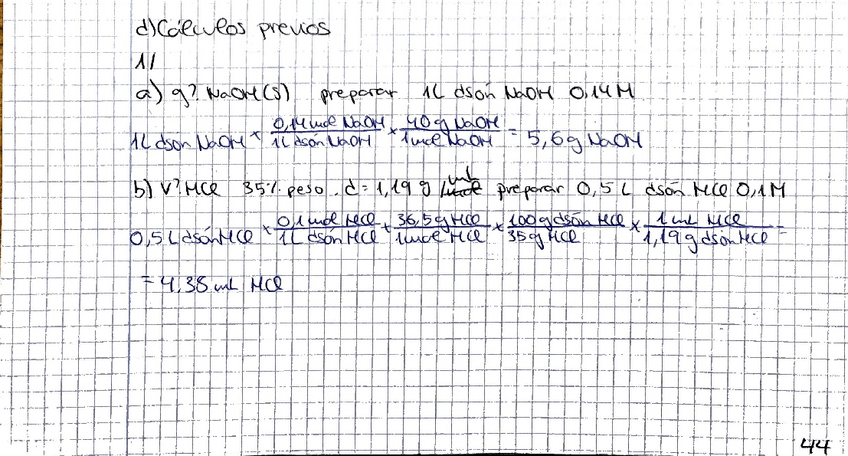 d) Cálculos previos
1/
a) g? NaOH(s) preparar 1L dsón NaOH 0,14M
1L dson NaOH × 0,14 mol NaOH / 1L dsón NaOH × 40 g NaOH / 1 mol NaOH = 5,6 g NaOH
b) V? HCl 35% peso. d = 1,19 g/mL preparar 0,5 L dsón HCl 0,1M
0,5 L dsón HCl × 0,1 mol HCl / 1L dsón HCl × 36,5 g HCl / 1 mol HCl × 100 g dsón HCl / 35 g HCl × 1 mL HCl / 1,19 g dsón HCl =
= 4,38 mL HCl
44